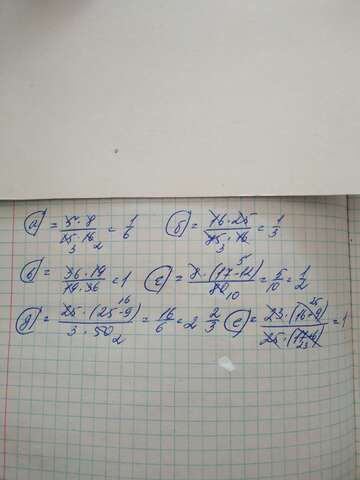 а) = 5·8/15·16 3 2 = 1/6 б) = 16·25/75·16 3 = 1/3
в) = 36·19/19·36 = 1 г) = 8·(17-12)/80 5 10 = 5/10 = 1/2
д) = 25·(25-9)/3·50 16 2 = 16/6 = 2 2/3 е) = 23·(16+9)/25·(17+6) 25 23 = 1